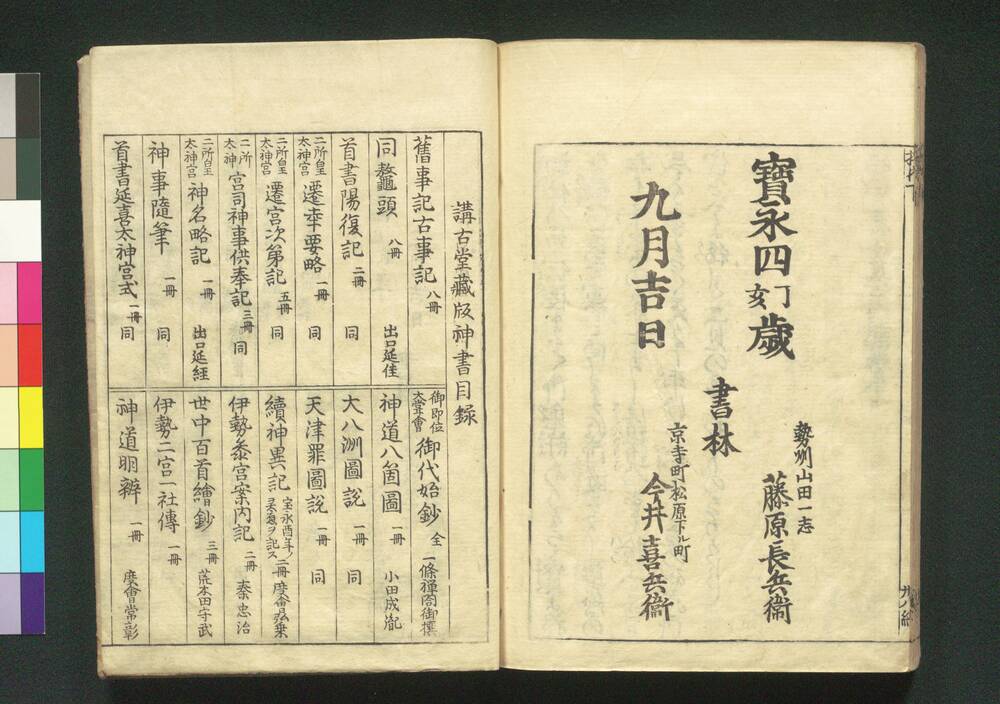 寳永四丁亥歲
九月吉日
書林
勢州山田一志
藤原長兵衞
京寺町松原下ル町
今井喜兵衞
講古堂藏版神書目録
舊事記古事記 八冊
同鼇頭 八冊 出口延佳
首書陽復記 二冊 同
二所皇太神宮遷幸要略 一冊 同
二所皇太神宮遷宮次第記 五冊 同
二所太神宮司神事供奉記 三冊 同
二所皇太神宮神名略記 一冊 出口延経
神事隨筆 一冊 同
首書延喜太神宮式 一冊 同
御即位大甞會御代始鈔 全 一條禅閤御撰
神道八箇圖 一冊 小田成胤
大八洲圖說 一冊 同
天津罪圖說 一冊 同
續神異記 宝永酉年ノ灵驗ヲ記ス 二冊 度會弘乗
伊勢叅宮案内記 二冊 秦忠治
世中百首繪鈔 三冊 荒木田守武
伊勢二宮一社傳 一冊
神道明辨 一冊 度會常彰